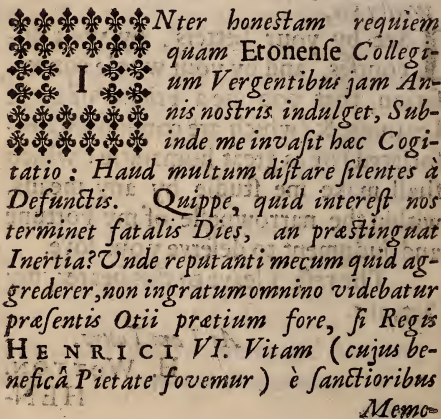 INter honestam requiem
quam Etonense Collegi-
um Vergentibus jam An-
nis nostris indulget, Sub-
inde me invasit hæc Cogi-
tatio : Haud multum distare silentes à
Defunctis. Quippe, quid interest nos
terminet fatalis Dies, an præstinguat
Inertia? Unde reputanti mecum quid ag-
grederer, non ingratum omnino videbatur
præsentis Otii prætium fore, si Regis
HENRICI VI. Vitam (cujus be-
neficâ Pietate fovemur) è sanctioribus
Memo-